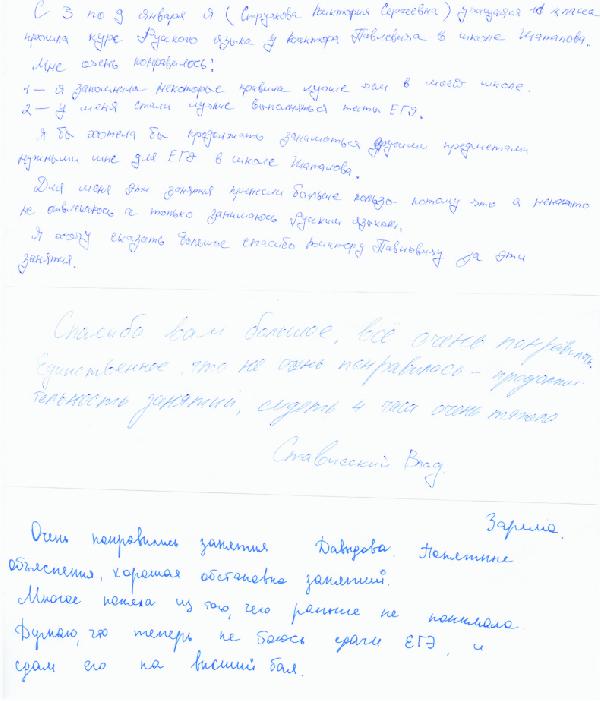 С 3 по 9 января я (Струкова Виктория Сергеевна) учащаяся 11 класса
прошла курс Русского языка у Виктора Павловича в школе Шаталова.
Мне очень понравилось!
1 – Я запомнила некоторые правила лучше чем в моей школе.
2 – У меня стали лучше выполняться тесты ЕГЭ.
Я бы хотела бы продолжать заниматься другими предметами
нужными мне для ЕГЭ в школе Шаталова.
Для меня эти занятия принесли больше пользы потому что я
не отвлекаюсь и только занимаюсь Русским языком.
Я хочу сказать большое спасибо Виктору Павловичу за эти
занятия.
Спасибо вам большое, всё очень понравилось.
Единственное, что не очень понравилось – продолжи-
тельность занятий, сидеть 4 часа очень тяжело
Ставиский Влад.
Зарема.
Очень понравились занятия Давыдова. Понятные
объяснения, хорошая обстановка занятий.
Многое поняла из того, чего раньше не понимала.
Думаю, что теперь не боюсь сдачи ЕГЭ, и
сдам его на высший бал.